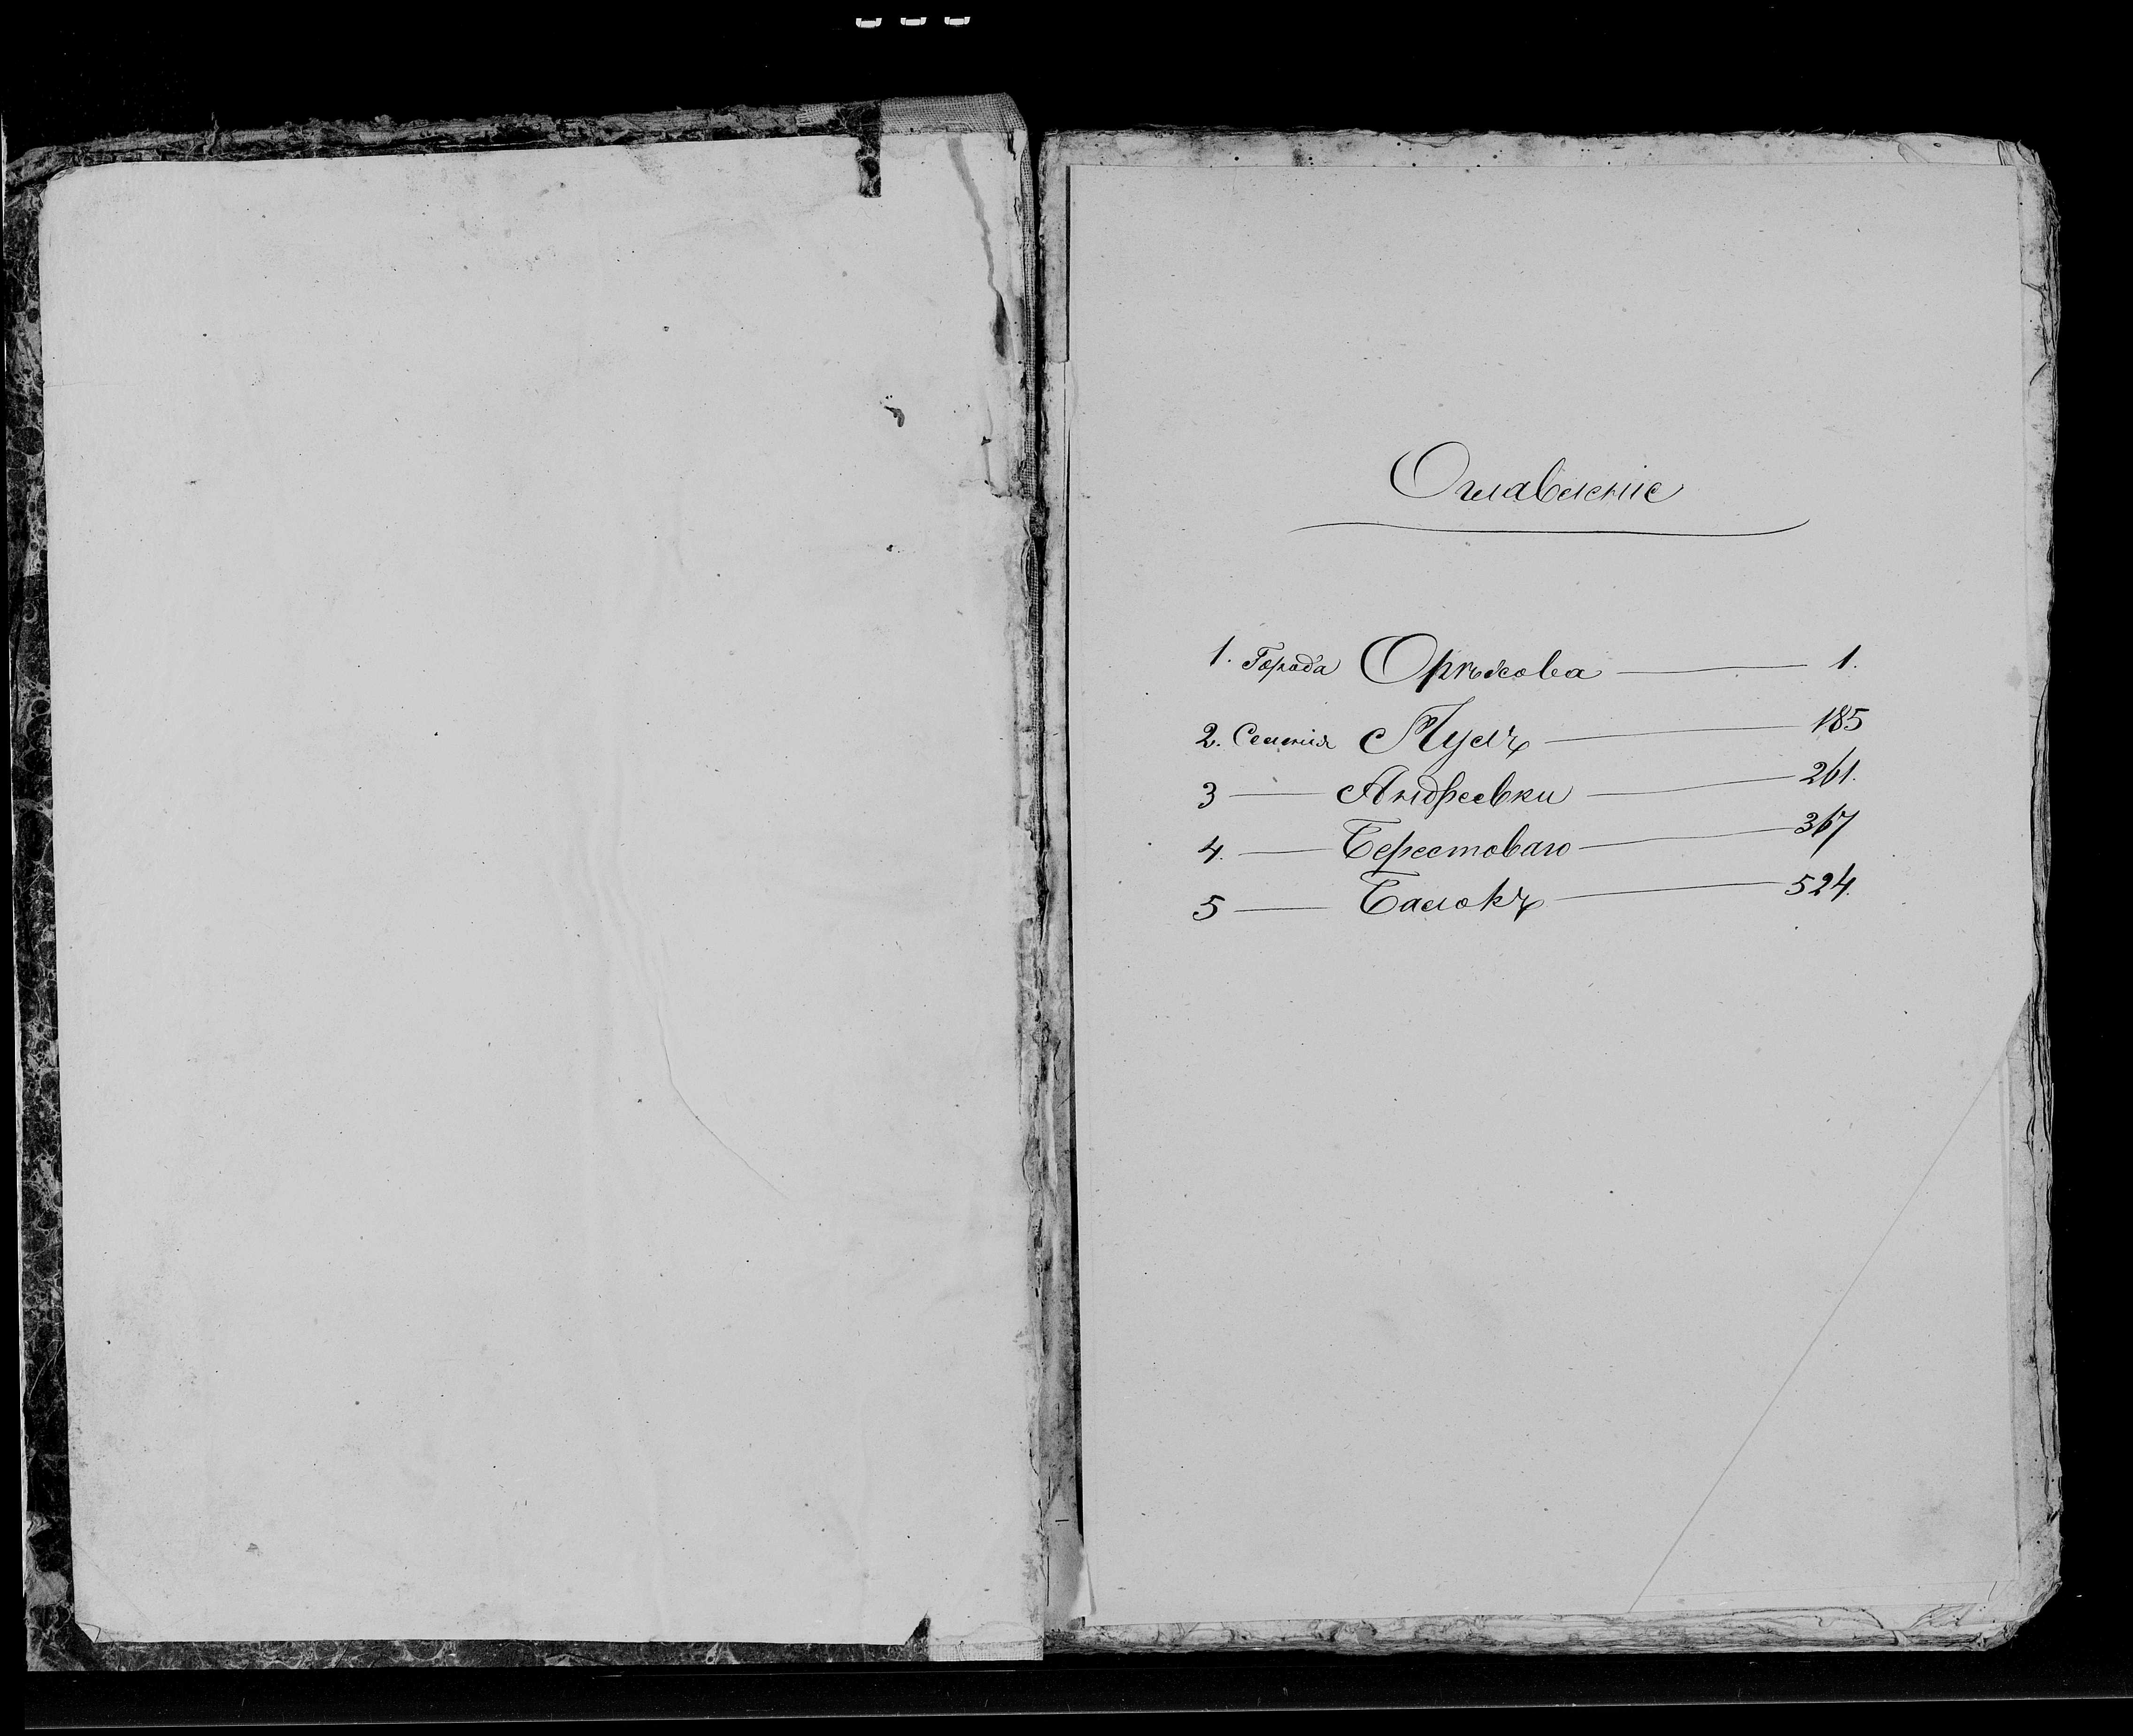 Оглавленіе
1. Города Орѣхова — 1.
2. Селенія Пулъ — 185
3 — Андреевки — 261.
4. — Берестоваго — 367
5 — Балокъ — 524.